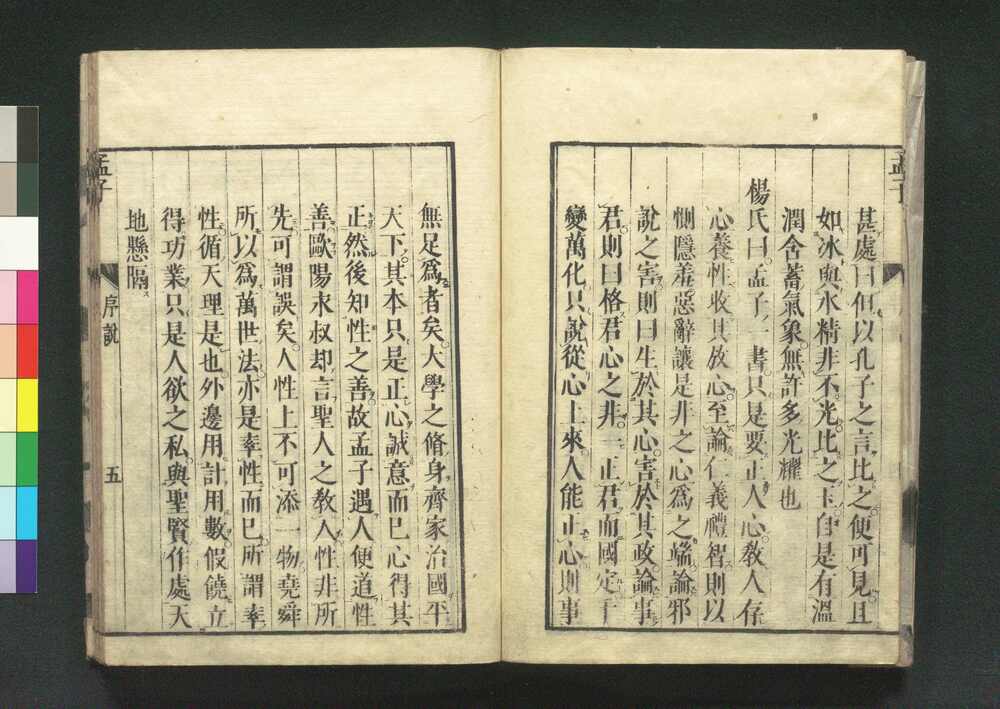 甚處曰但以孔子之言比之便可見且
如冰與水精非不光比之玉自是有溫
潤含蓄氣象無許多光耀也
楊氏曰孟子一書只是要正人心教人存
心養性收其放心至論仁義禮智則以
惻隱羞惡辭讓是非之心爲之端論邪
說之害則曰生於其心害於其政論事
君則曰格君心之非一正君而國定千
變萬化只說從心上來人能正心則事
無足爲者矣大學之脩身齊家治國平
天下其本只是正心誠意而已心得其
正然後知性之善故孟子遇人便道性
善歐陽永叔却言聖人之教人性非所
先可謂誤矣人性上不可添一物堯舜
所以爲萬世法亦是率性而已所謂率
性循天理是也外邊用計用數假饒立
得功業只是人欲之私與聖賢作處天
地懸隔
孟子
序說
五
孟子